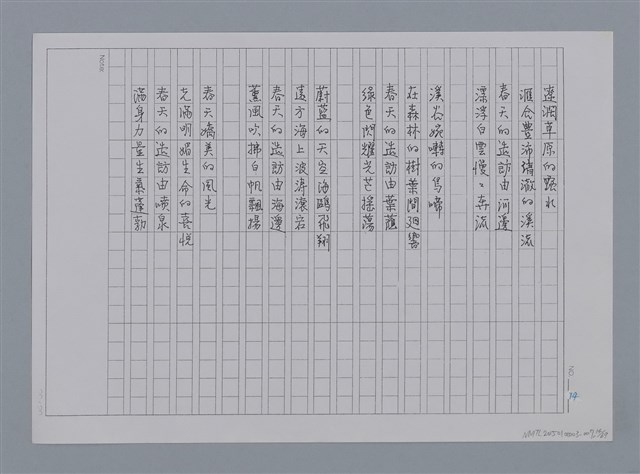 遼濶草原的路水
滙合豐沛清澈的溪流
春天的造訪由河邊
漂浮白雲慢慢奔流
溪谷婉囀的鳥啼
在森林的樹葉間廻響
春天的造訪由葉蔭
綠色閃耀光芒搖蕩
蔚藍的天空海鷗飛翔
遠方海上波濤滾宕
春天的造訪由海邊
薰風吹拂白帆飄揚
春天療美的風光
充滿明媚生命的喜悅
春天的造訪由噴泉
滿身力量生氣蓬勃
Note: